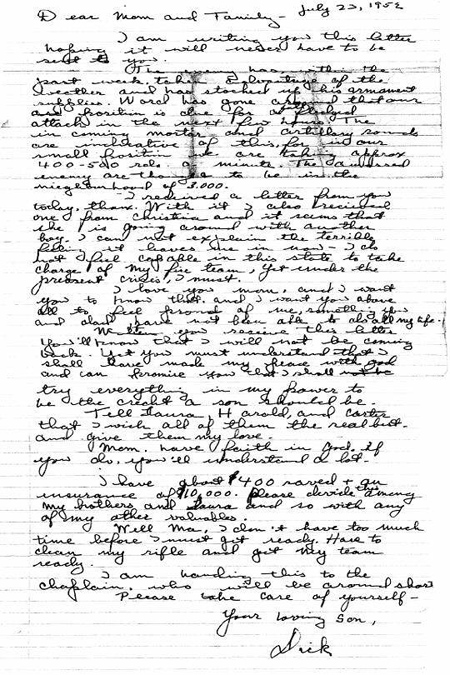 July 23, 1952
Dear Mom and Family -
I am writing you this letter
hoping it will never have to be
sent to you.
The enemy has within the
past week taken advantage of the
weather and has stocked up his armament
supplies. Word has gone around that our
position is due for a
attack in the next few hours. The
in coming mortar and artillery rounds
are indicative of this, for in our
small position we are taking approx
400-500 rds. a minute. The
enemy are thought to be in the
neighborhood of 3,000.
I received a letter from you
today, thanx. With it I also received
one from Christia and it seems that
she is going around with another
boy. I can not explain the terrible
feeling it leaves me in now - I do
not feel capable in this state to take
charge of my fire team, yet under the
present crisis, I must.
I love you mom, and I want
you to know that. and I want you above
all to feel proud of me, something you
and dad have not been able to do all my life.
When you receive this letter
You'll know that I will not be coming
back. Yet you must understand that I
shall have made my peace with god
and can promise you that I shall
try everything in my power to
be the credit a son should be.
Tell Laura, Harold, and Carter
that I wish all of them the real best.
and give them my love.
Mom, have faith in God. If
you do, you'll understand a lot.
I have about $400 saved + an
insurance of $10,000. Please divide this among
my brothers and Laura and so with any
of my other valuables.
Well Ma, I don't have too much
time before I must get ready. Have to
clean my rifle and get my team
ready.
I am handing this to the
chaplain who will be around
Please take care of yourself -
Your loving son,
Dick